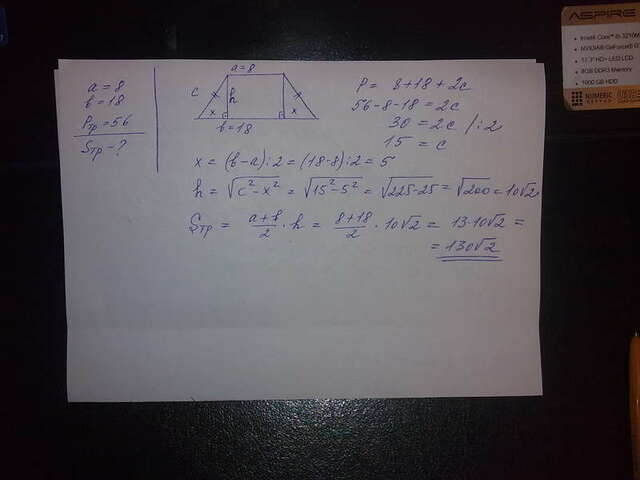 a = 8
b = 18
Pтр = 56
Sтр - ?
a = 8
c
h
x
x
b = 18
P = 8+18+2c
56-8-18 = 2c
30 = 2c /:2
15 = c
x = (b-a):2 = (18-8):2 = 5
h = √c²-x² = √15²-5² = √225-25 = √200 = 10√2
Sтр = a+b/2 · h = 8+18/2 · 10√2 = 13·10√2 =
= 130√2
ASPIRE
Intel® Core™ i5-3210M
NVIDIA® GeForce®
17.3" HD+ LED LCD
8GB DDR3 Memory
1000 GB HDD
NUMERIC
KEYPAD